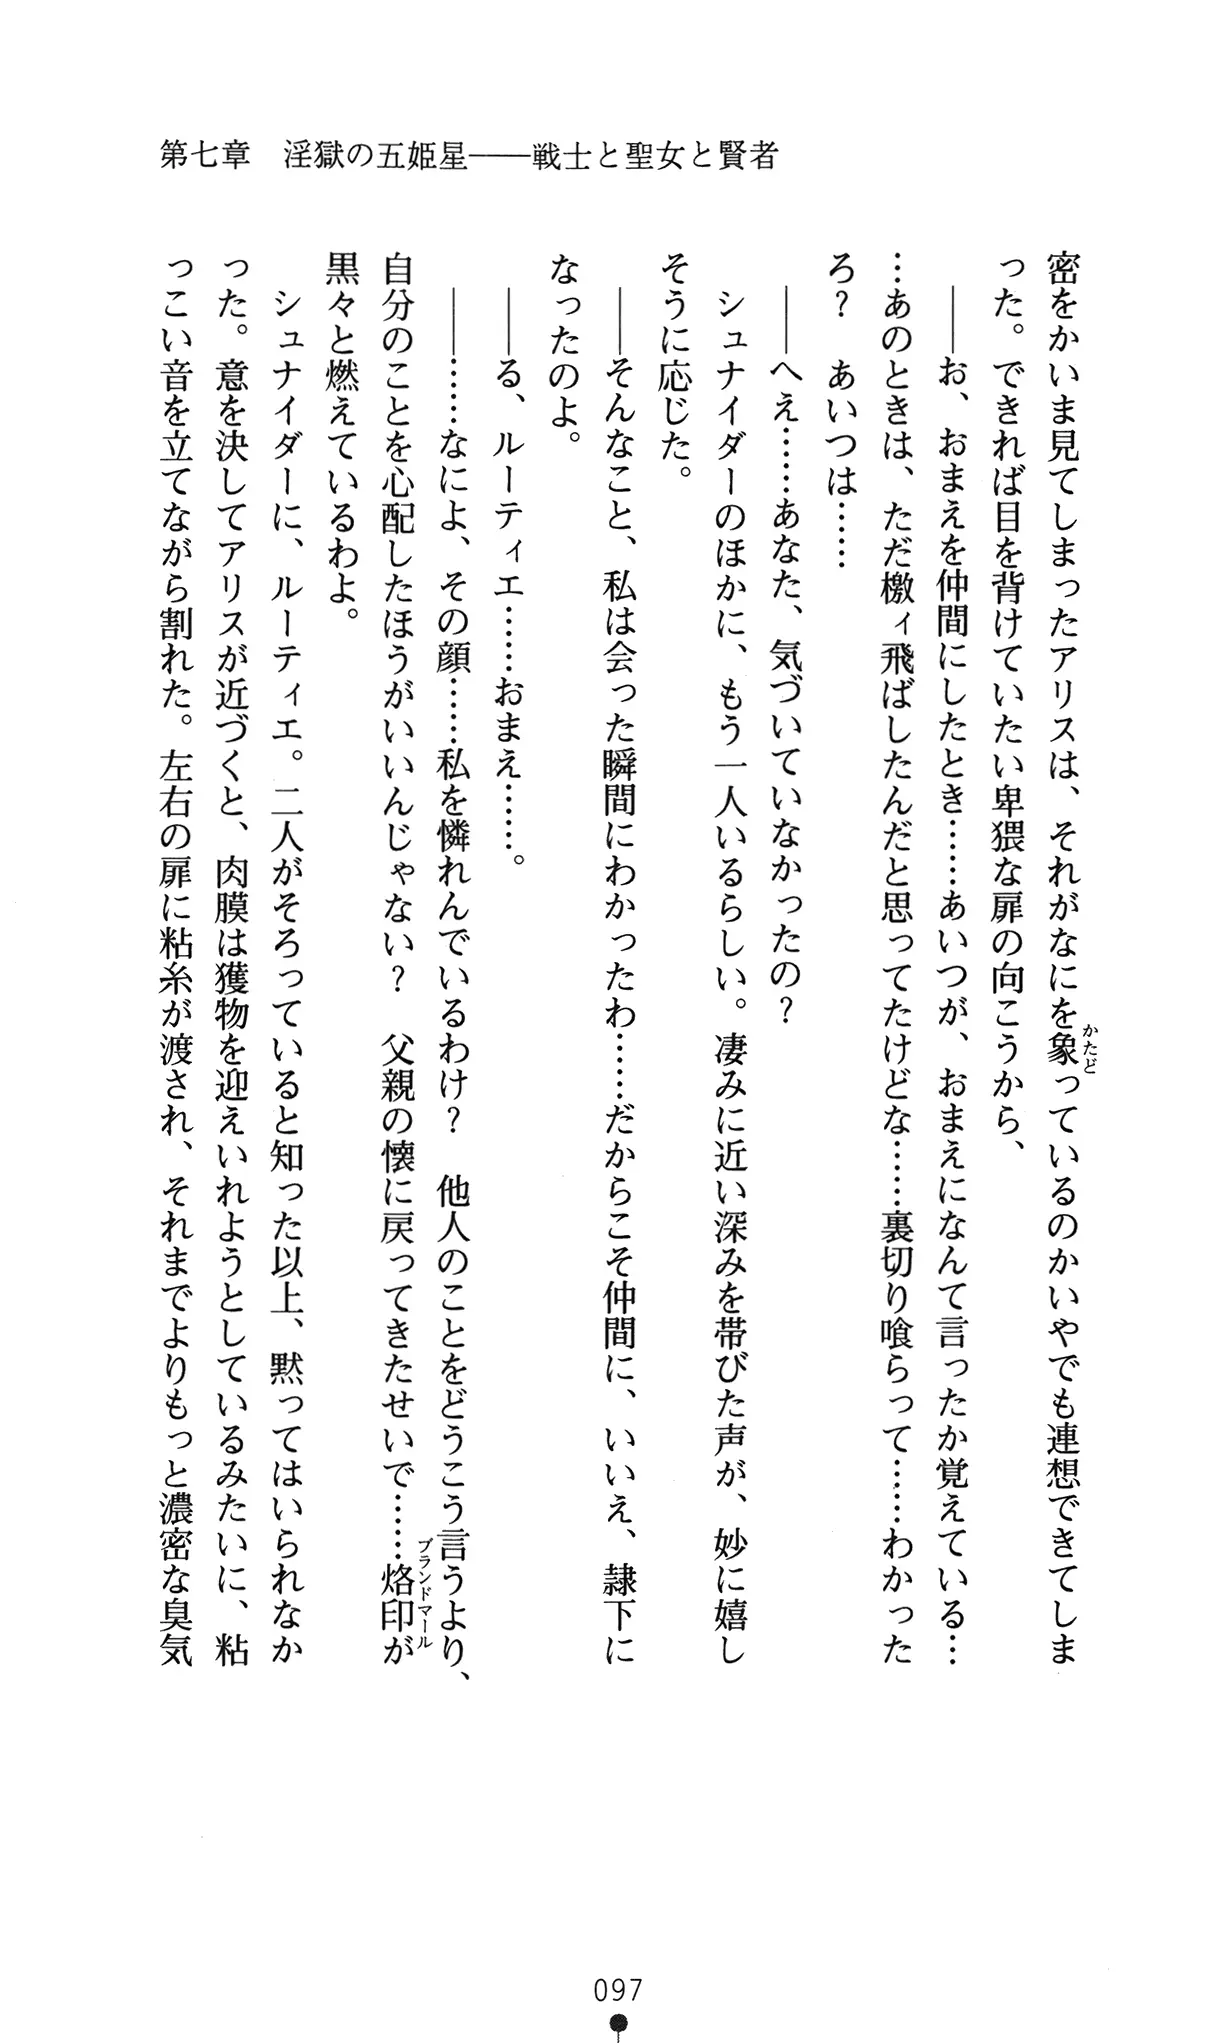 第七章　淫獄の五姫星――戦士と聖女と賢者
密をかいま見てしまったアリスは、それがなにを象っているのかいやでも連想できてしま
かたど
った。できれば目を背けていたい卑猥な扉の向こうから、
――お、おまえを仲間にしたとき……あいつが、おまえになんて言ったか覚えている…
…あのときは、ただ檄ィ飛ばしたんだと思ってたけどな……裏切り喰らって……わかった
ろ？　あいつは……
――へえ……あなた、気づいていなかったの？
シュナイダーのほかに、もう一人いるらしい。凄みに近い深みを帯びた声が、妙に嬉し
そうに応じた。
――そんなこと、私は会った瞬間にわかったわ……だからこそ仲間に、いいえ、隷下に
なったのよ。
――る、ルーティエ……おまえ……。
――……なによ、その顔……私を憐れんでいるわけ？　他人のことをどうこう言うより、
自分のことを心配したほうがいいんじゃない？　父親の懐に戻ってきたせいで……烙印が
ブランドマール
黒々と燃えているわよ。
シュナイダーに、ルーティエ。二人がそろっていると知った以上、黙ってはいられなか
った。意を決してアリスが近づくと、肉膜は獲物を迎えいれようとしているみたいに、粘
っこい音を立てながら割れた。左右の扉に粘糸が渡され、それまでよりもっと濃密な臭気
097